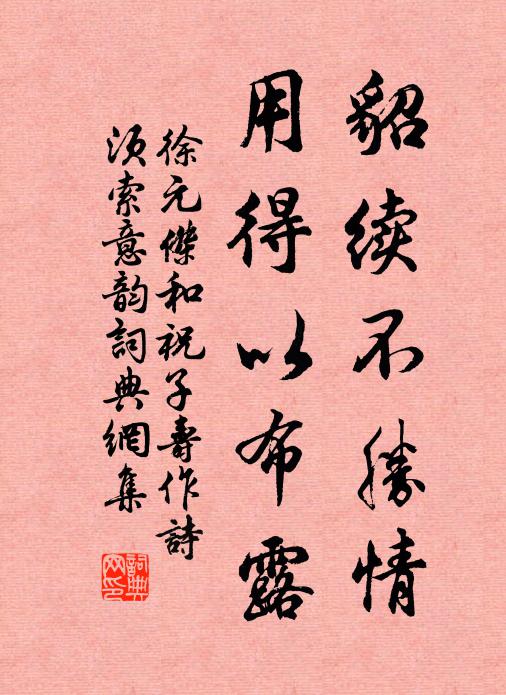 貂续不勝情
用得以布露
徐元傑和祝子壽作詩
須索意韵詞典網集
詞典
网印